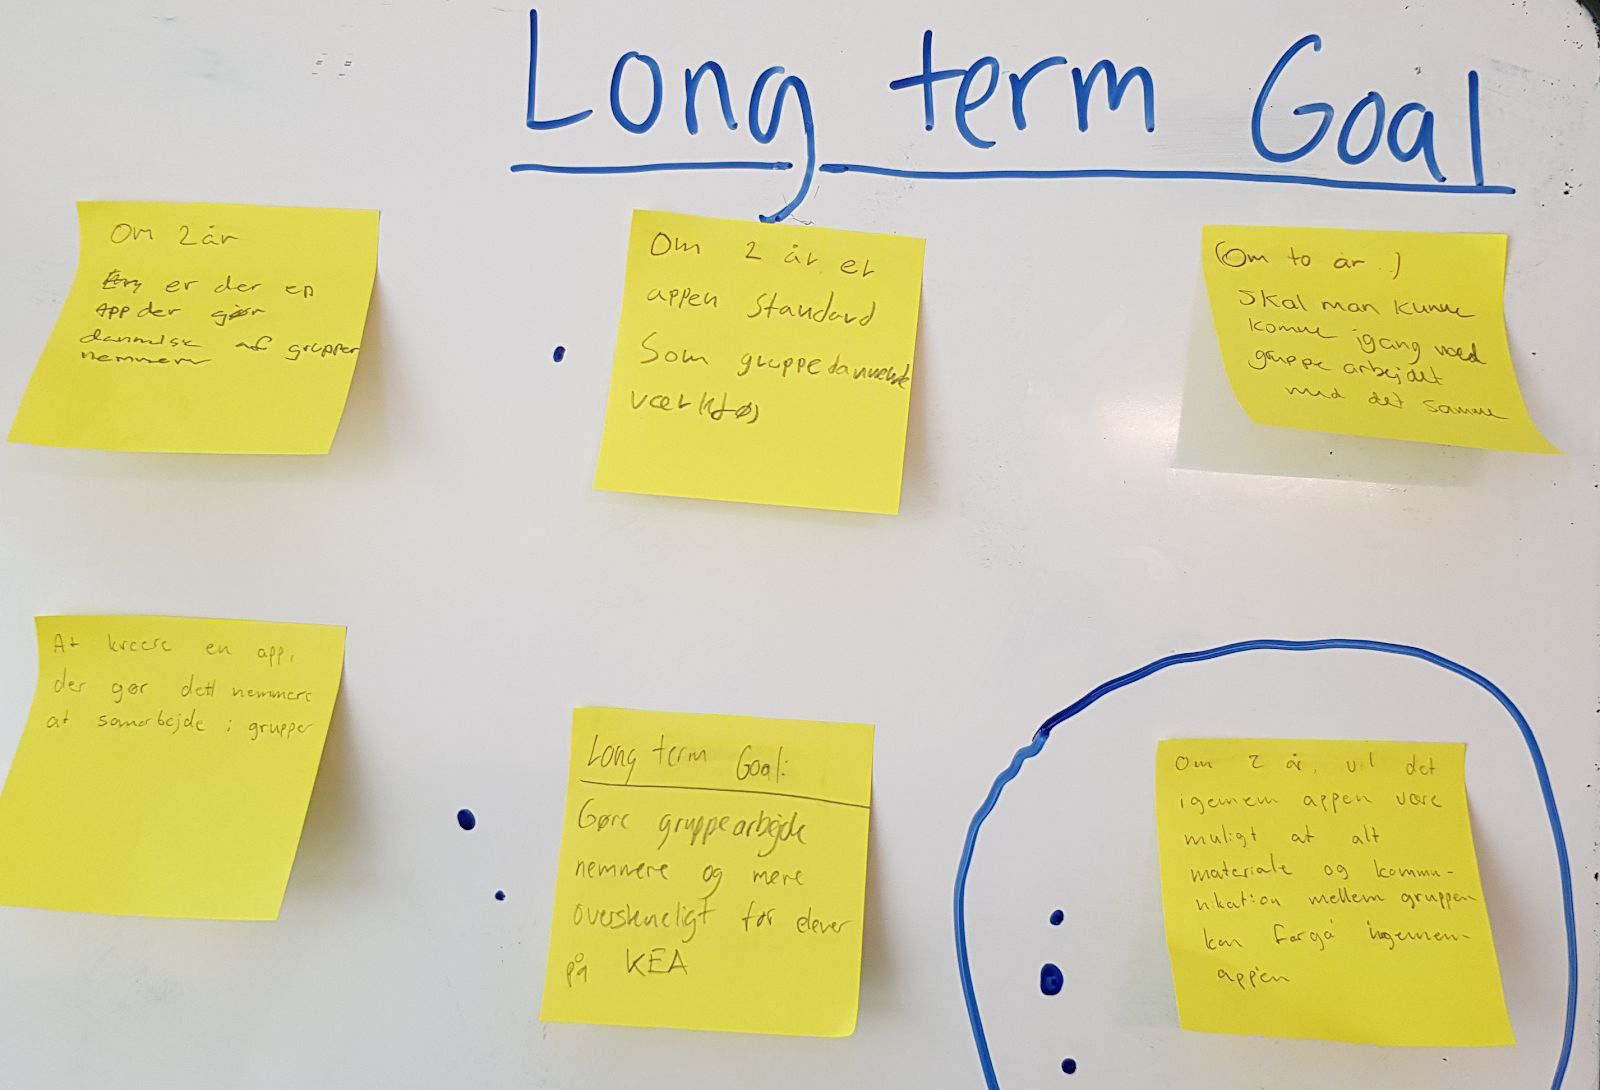 Long term Goal
Om 2 år
er der en
App der gør
af grupper
nemmere
Om 2 år er
appen standard
Som gruppedannende
værktøj
(Om to år..)
Skal man kunne
komme igang ved
gruppe arbejdet
med det samme
At kreere en app,
der gør det nemmere
at samarbejde i grupper
Long term Goal:
Gøre gruppearbejde
nemmere og mere
overskueligt for elever
på KEA
Om 2 år, vil det
igennem appen være
muligt at alt
materiale og kommu-
nikation mellem gruppen
kan forgå ingennem
appen